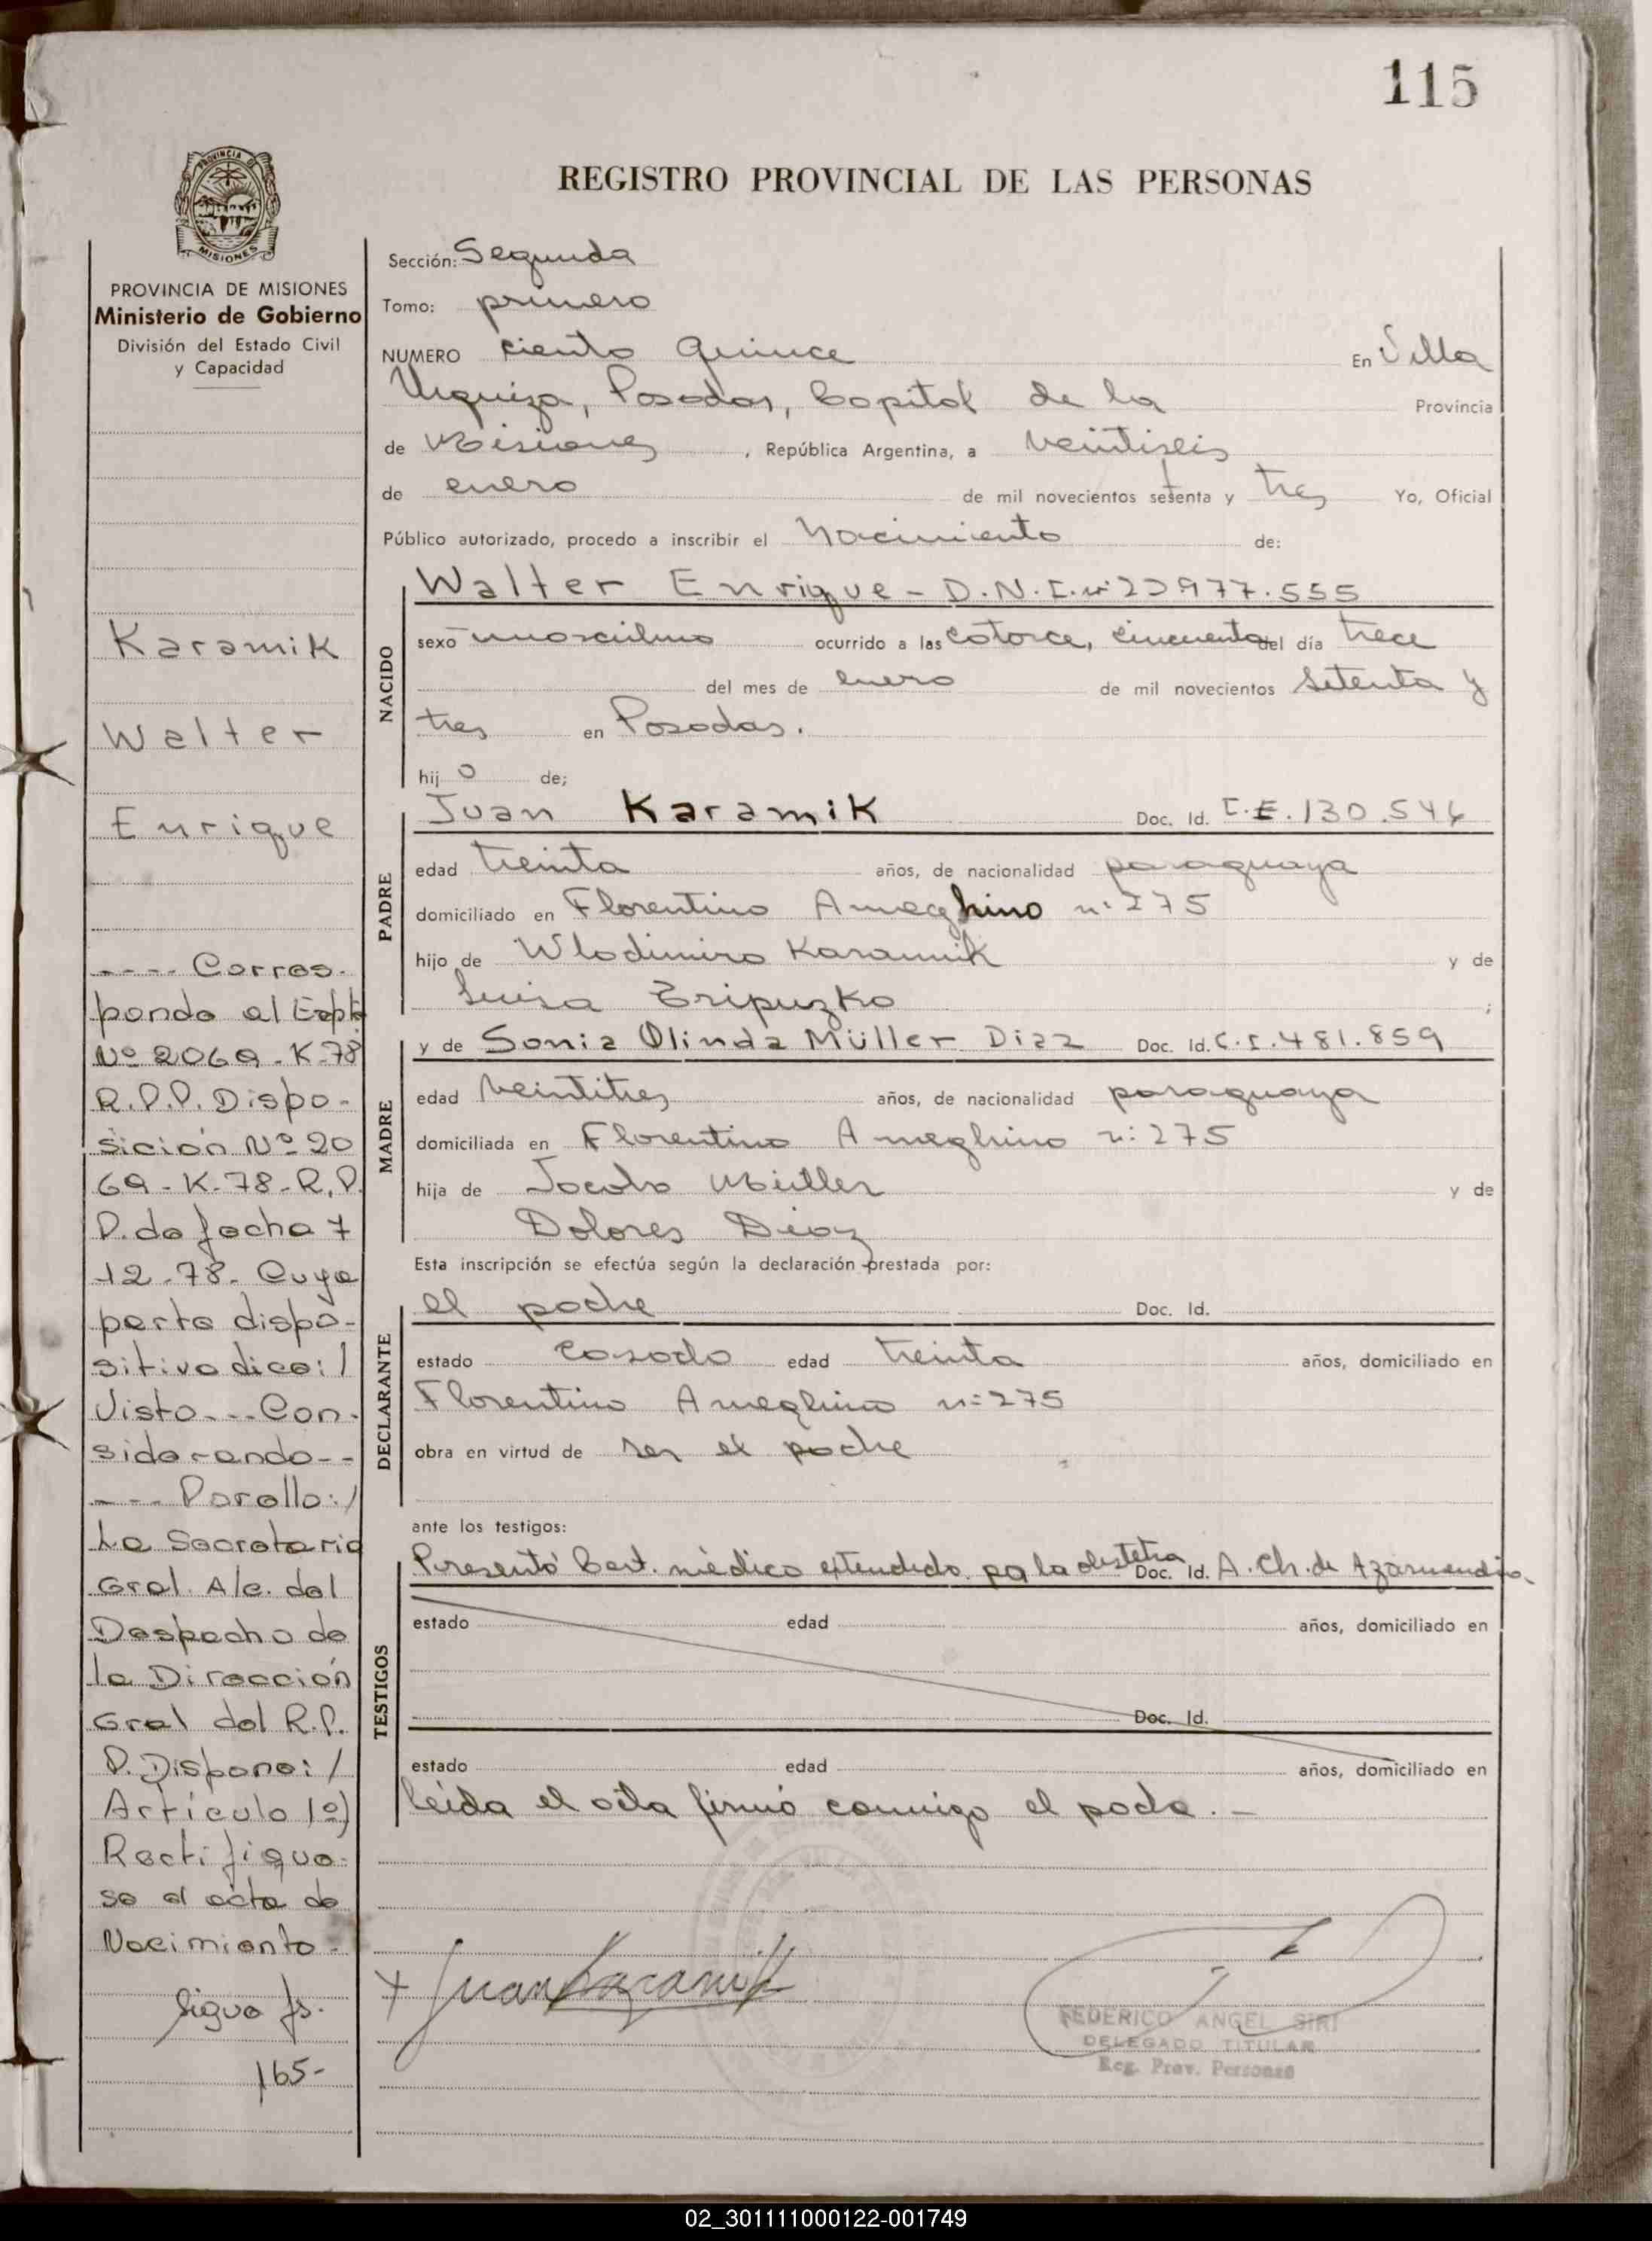 115
REGISTRO PROVINCIAL DE LAS PERSONAS
PROVINCIA DE
MISIONES
PROVINCIA DE MISIONES
Ministerio de Gobierno
División del Estado Civil
y Capacidad
Karamik
Walter
Enrique
---- Corres-
ponde al Expte
Nº 2069-K-78
R.P.P. Dispo-
sición Nº 20
69-K-78-R.P.
P. de fecha 7
12-78- Cuya
parte dispo-
sitiva dice:/
Visto---Con-
siderando--
---- Por ello:/
La Secretaria
Gral. A/c. del
Despacho de
la Dirección
Gral del R.P.
P. Dispone:/
Artículo 1º)
Rectifique-
se el acta de
Nacimiento-
Sigue fs.
165-
Sección: Segunda
Tomo: primero
NUMERO ciento quince En Villa
Urquiza, Posadas, Capital de la Provincia
de Misiones, República Argentina, a veintiseis
de enero de mil novecientos setenta y tres Yo, Oficial
Público autorizado, procedo a inscribir el Nacimiento de:
NACIDO
Walter Enrique - D.N.I. nº 22977.555
sexo masculino ocurrido a las catorce, cincuenta del día trece
del mes de enero de mil novecientos setenta y
tres en Posadas.
hijo de;
PADRE
Juan Karamik Doc. Id. C.E. 130.546
edad treinta años, de nacionalidad paraguaya
domiciliado en Florentino Ameghino nº 275
hijo de Wlodimiro Karamik y de
Luisa Eripuzko ;
MADRE
y de Sonia Olinda Müller Diaz Doc. Id. C.I. 481.859
edad veintitres años, de nacionalidad paraguaya
domiciliada en Florentino Ameghino nº 275
hija de Jacobo Müller y de
Dolores Diaz
Esta inscripción se efectúa según la declaración prestada por:
DECLARANTE
el padre Doc. Id.
estado casado edad treinta años, domiciliado en
Florentino Ameghino nº 275
obra en virtud de ser el padre
ante los testigos:
TESTIGOS
Presentó Cert. médico extendido pa la obstetra Doc. Id. A. Ch. de Azarmendia
estado edad años, domiciliado en
Doc. Id.
estado edad años, domiciliado en
Leída el acta firmó conmigo el padre. -
x Juan Karamik
FEDERICO ANGEL SIRI
DELEGADO TITULAR
Reg. Prov. Personas
02_301111000122-001749